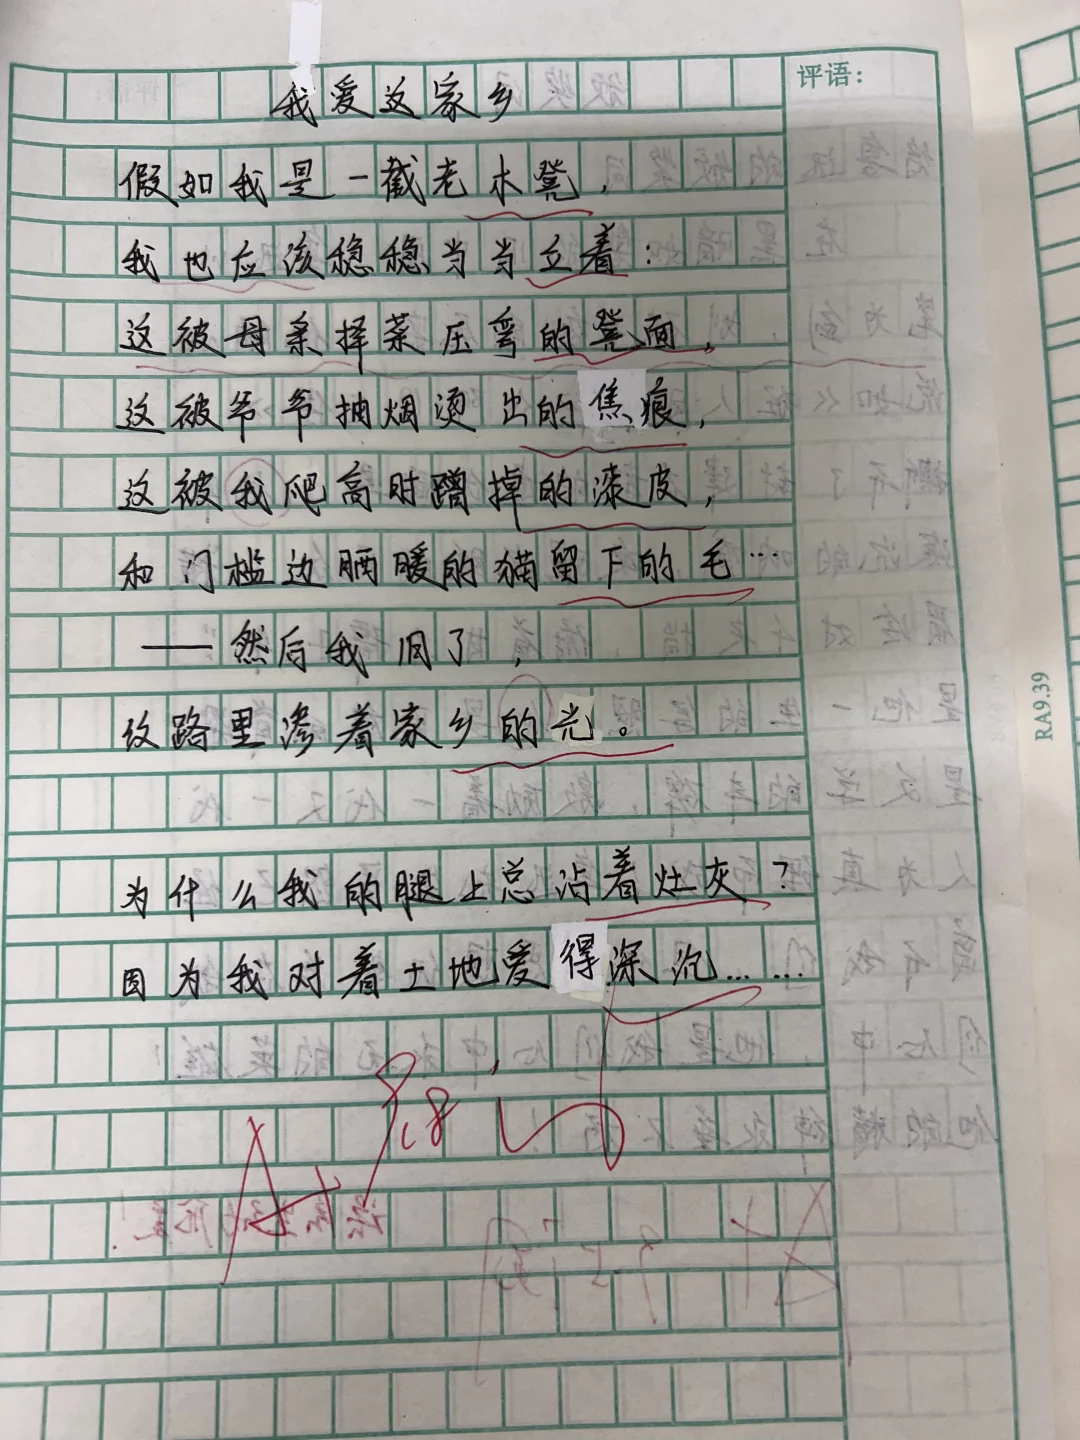 评语:
我爱这家乡
假如我是一截老木凳，
我也应该稳稳当当立着：
这被母亲择菜压弯的凳面，
这被爷爷抽烟烫出的焦痕，
这被我爬高时蹭掉的漆皮，
和门槛边晒暖的猫留下的毛…
——然后我旧了，
纹路里渗着家乡的光。
为什么我的腿上总沾着灶灰？
因为我对着土地爱得深沉……
RA9.39